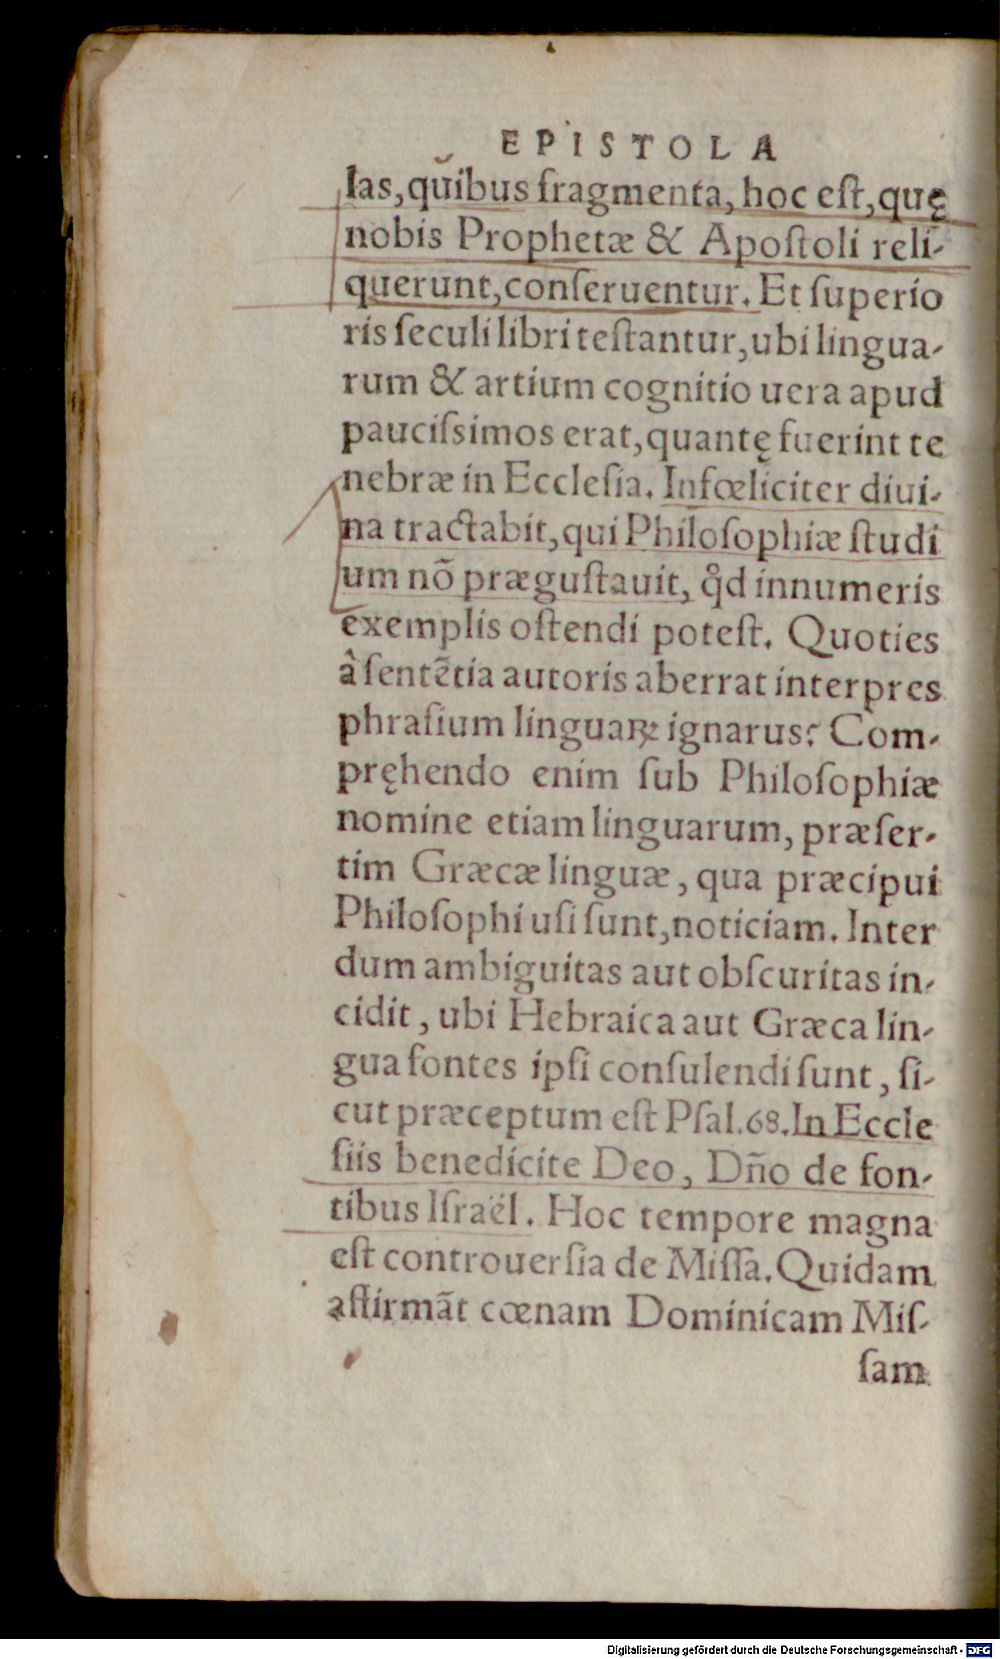 EPISTOLA
las, quibus fragmenta, hoc eſt, quę
nobis Prophetæ & Apoſtoli reli-
querunt, conſeruentur. Et ſuperio
ris ſeculi libri teſtantur, ubi lingua-
rum & artium cognitio uera apud
pauciſsimos erat, quantę fuerint te
nebræ in Eccleſia. Infœliciter diui-
na tractabit, qui Philoſophiæ ſtudi
um nõ præguſtauit, qd̕ innumeris
exemplis oſtendi poteſt. Quoties
â ſentẽtia autoris aberrat interpres
phraſium linguaꝝ ignarus? Com-
pręhendo enim ſub Philoſophiæ
nomine etiam linguarum, præſer-
tim Græcæ linguæ, qua præcipui
Philoſophi uſi ſunt, noticiam. Inter
dum ambiguitas aut obſcuritas in-
cidit, ubi Hebraica aut Græca lin-
gua fontes ipſi conſulendi ſunt, ſi-
cut præceptum eſt Pſal. 68. In Eccle
ſiis benedicite Deo, Dño de fon-
tibus Iſraël. Hoc tempore magna
eſt controuerſia de Miſſa. Quidam
affirmãt cœnam Dominicam Miſ-
ſam
Digitalisierung gefördert durch die Deutsche Forschungsgemeinschaft - DFG